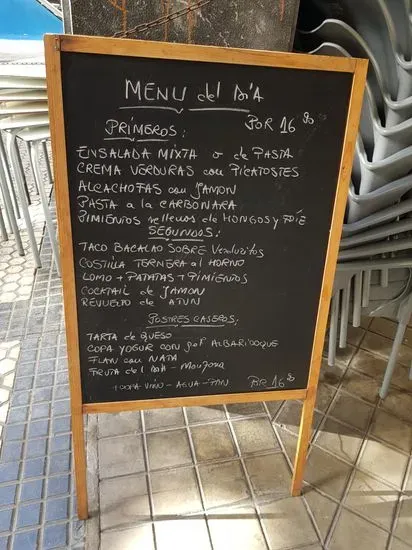 MENU del DíA
PRIMEROS:
POR 16'90
ENSALADA MIXTA o de PASTA
CREMA VERDURAS con PICATOSTES
ALCACHOFAS con JAMON
PASTA a la CARBONARA
PIMIENTOS rellenos de HONGOS y FOIE
SEGUNDOS:
TACO BACALAO SOBRE Verduritas
COSTILLA TERNERA al HORNO
LOMO + PATATAS + PIMIENTOS
COCKTAIL de JAMON
REVUELTO de ATUN
POSTRES CASEROS:
TARTA de QUESO
COPA YOGUR CON ALBARICOQUE
FLAN con NATA
FRUTA del DIA - Manzana
1 COPA VINO - AGUA - PAN
POR 16'90